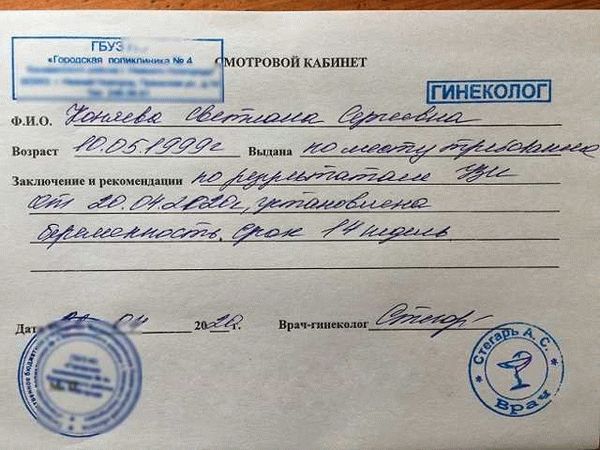 ГБУЗ
«Городская поликлиника № 4
СМОТРОВОЙ КАБИНЕТ
ГИНЕКОЛОГ
Ф.И.О. Коняева Светлана Сергеевна
Возраст 10.05.1999г Выдана по месту требования
Заключение и рекомендации по результатам УЗИ
от 20.04.2020г, установлена
беременность. срок 14 недель.
Дата 04 2020г. Врач-гинеколог Стегарь
Стегарь А. С.
Врач